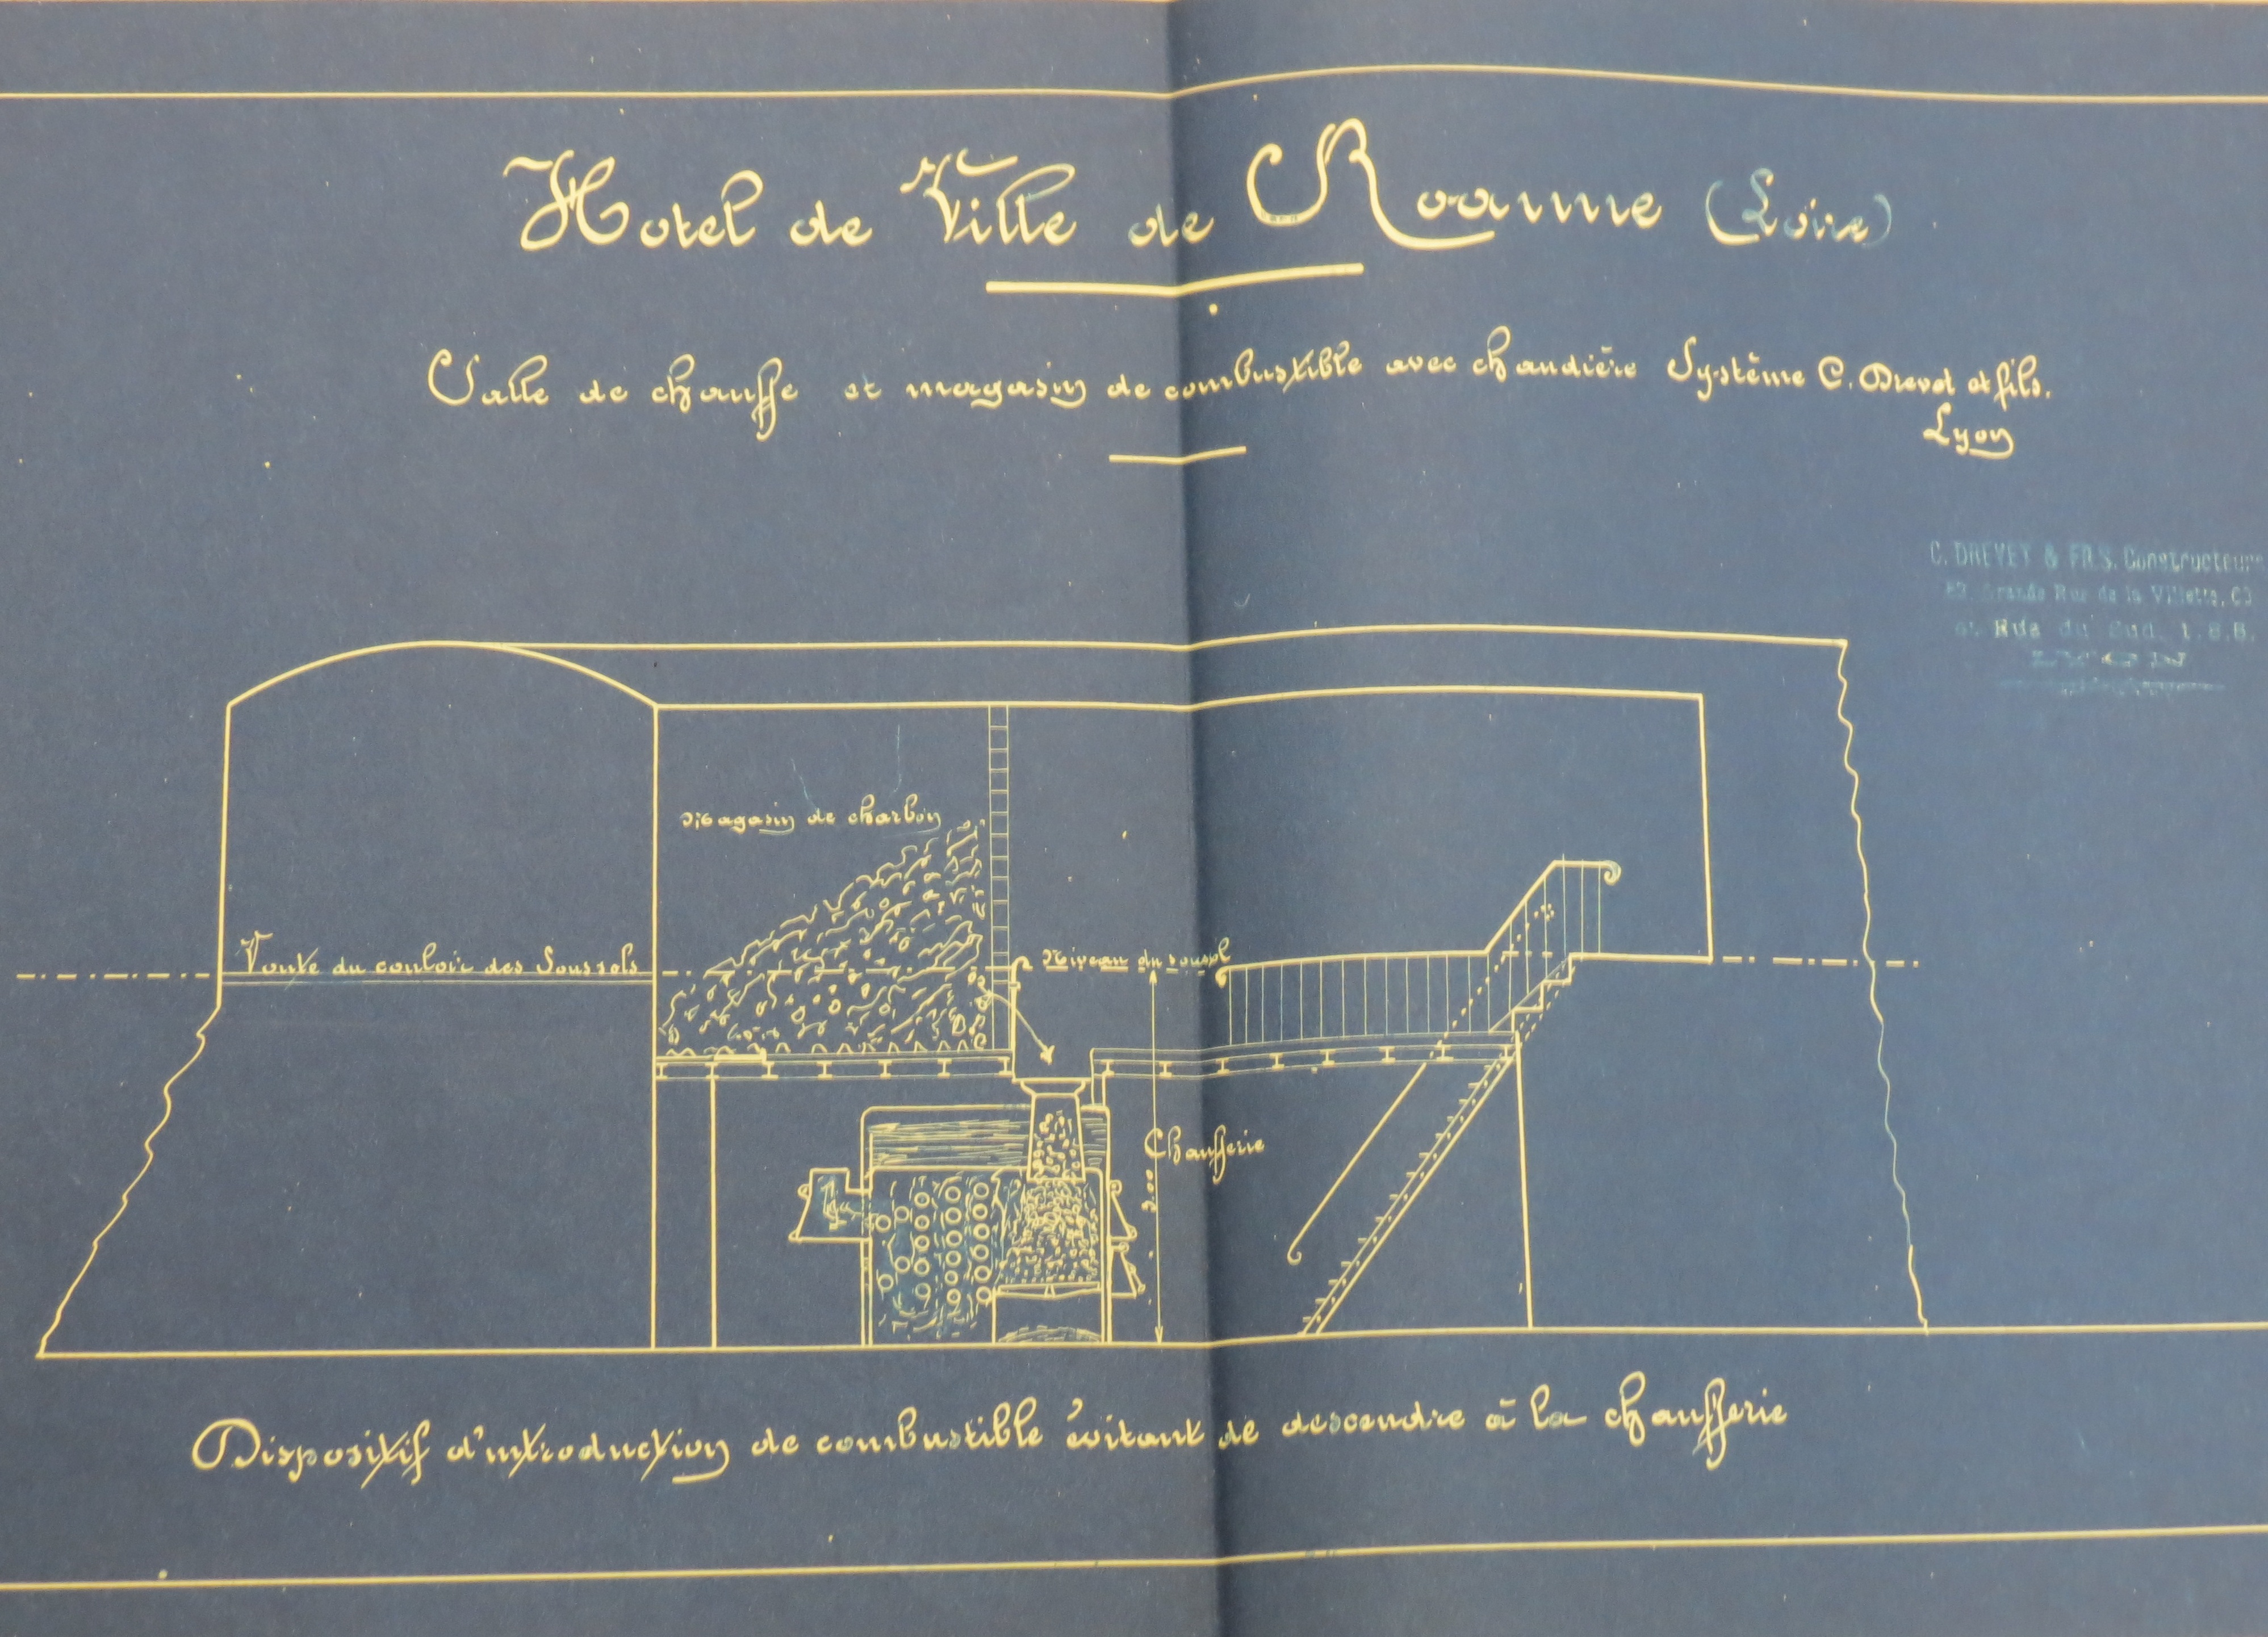 Hotel de Ville de Roanne (Loire)
Salle de chauffe et magasin de combustible avec chaudière Système C. Drevet et fils.
Lyon
C. DREVET & FILS. Constructeurs
Grande Rue de la Villette,
Rue du Sud.
LYON
Magasin de charbon
Voute du couloir des Soussols
Niveau du soussol
Chaufferie
Dispositif d'introduction de combustible évitant de descendre à la chaufferie